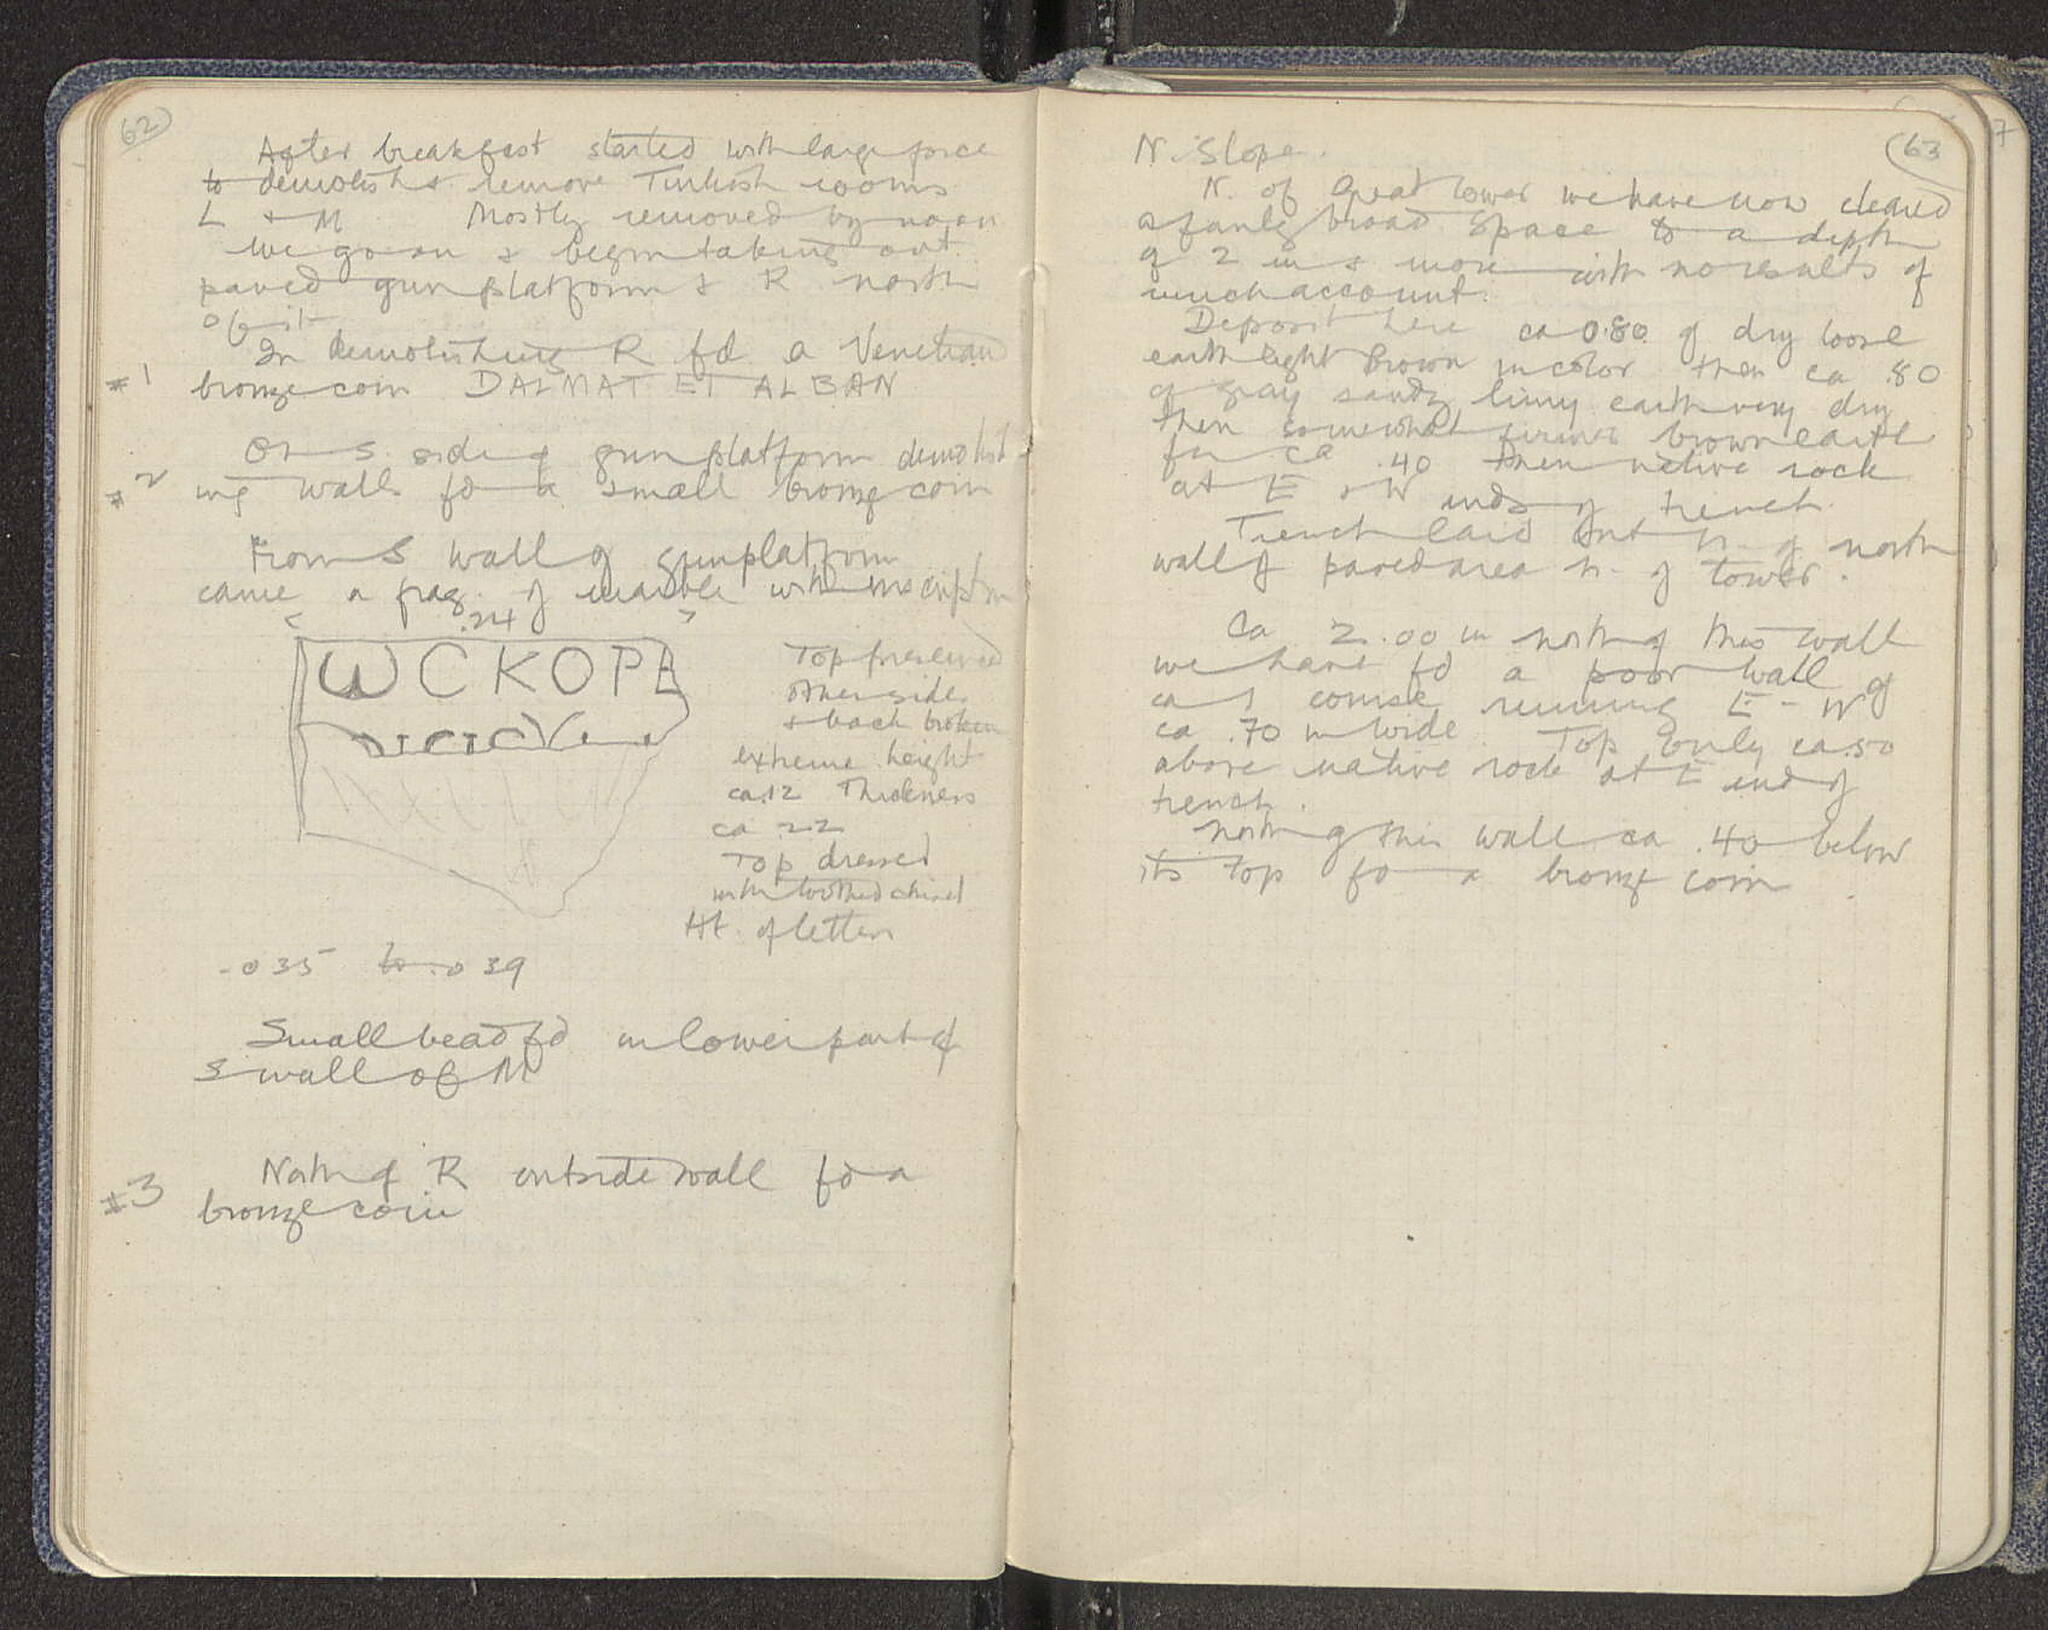 62
After breakfast started with large force
to demolish & remove Turkish rooms
L & M Mostly removed by noon
we go on & begin taking out
paved gun platform & R north
of it
In demolishing R fd a Venetian
#1 bronze coin DALMAT ET ALBAN
On S. side of gun platform demolish-
#2 ing walls fd a small bronze coin
From S wall of gun platform
came a frag. of marble with inscription
.24
ωCKOPE
Top preserved
other sides
& back broken
extreme height
ca .12 Thickness
ca .22
Top dressed
with toothed chisel
Ht. of letters
.035 to .039
Small bead fd in lower part of
S wall of M
#3 North of R outside wall fd a
bronze coin
63
N. Slope.
N. of Great tower we have now cleared
a fairly broad space to a depth
of 2 m & more with no results of
much account.
Deposit here ca 0.80 of dry loose
earth light brown in color then ca .80
of gray sandy limy earth very dry
then somewhat firmer brown earth
for ca .40 then native rock
at E & W ends of trench.
Trench laid out n. of north
wall of paved area n. of tower.
Ca 2.00 m north of this wall
we have fd a poor wall of
ca 1 course running E-W
ca .70 m wide. Top only ca .50
above native rock at E end of
trench.
North of this wall ca .40 below
its top fd a bronze coin